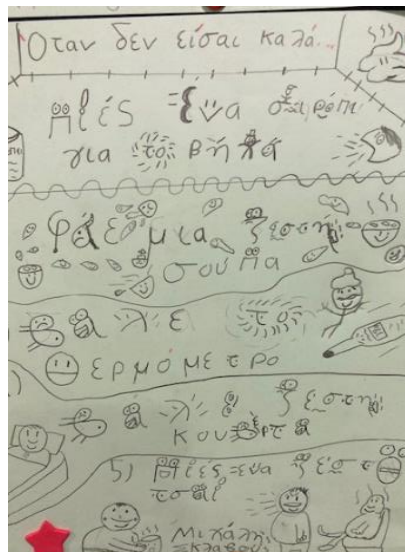 Όταν δεν είσαι καλά...
Πιές ένα σιρόπι
για το βήχα
Φάε μια ζεστή
σούπα
Βάλε το
θερμόμετρο
Βάλε ζεστή
κουβέρτα
5) Πιές ένα ζεστό
τσάι
Μιχάλη